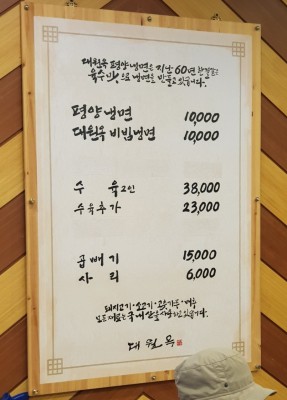 대원옥 평양냉면은 지난 60년 한결같은
육수맛으로 냉면을 만들고 있습니다.
평양냉면 10,000
대원옥 비빔냉면 10,000
수육 2인 38,000
수육추가 23,000
곱배기 15,000
사리 6,000
돼지고기·소고기·고춧가루·배추
모든 재료는 국내산을 사용하고 있습니다.
대원옥